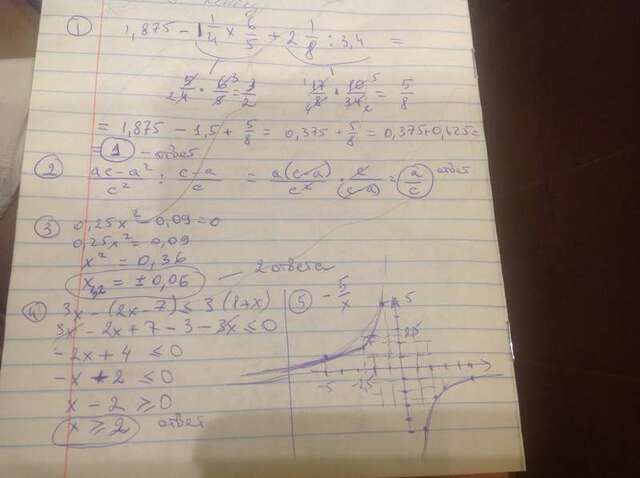 ① 1,875 - 1 1/4 × 6/5 + 2 1/8 : 3,4 =
5/4 · 6/5 = 3/2
17/8 · 10/34 = 5/8
= 1,875 - 1,5 + 5/8 = 0,375 + 5/8 = 0,375+0,625=
= 1 - ответ
② ac-a²/c² : c-a/c = a(c-a)/c² · c/(c-a) = a/c ответ
③ 0,25x² - 0,09=0
0,25x² = 0,09
x² = 0,36
x₁,₂ = ±0,06 — 2 ответа
④ 3x - (2x-7) ≤ 3(1+x)
3x - 2x + 7 - 3 - 3x ≤ 0
-2x + 4 ≤ 0
-x + 2 ≤ 0
x - 2 ≥ 0
x ≥ 2 ответ
⑤ - 5/x
5
2,5
-5
-2,5